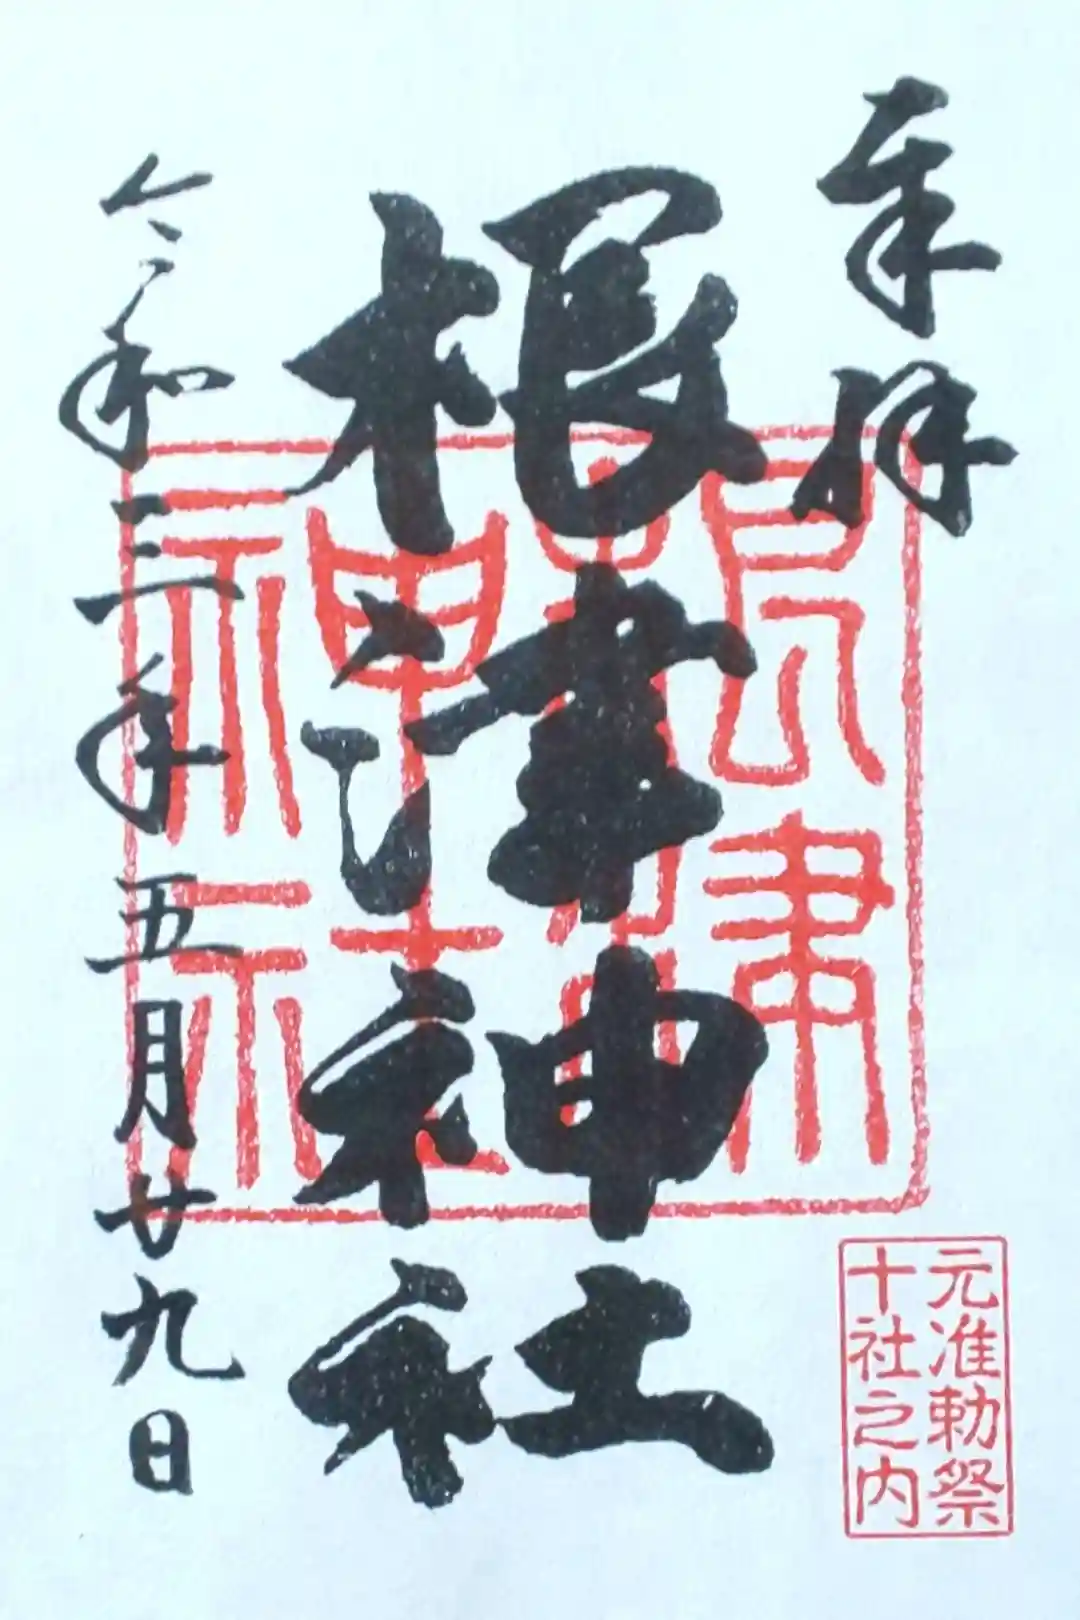 奉拝
根津神社
根津
神社
令和三年五月廿九日
元准勅祭
十社之内